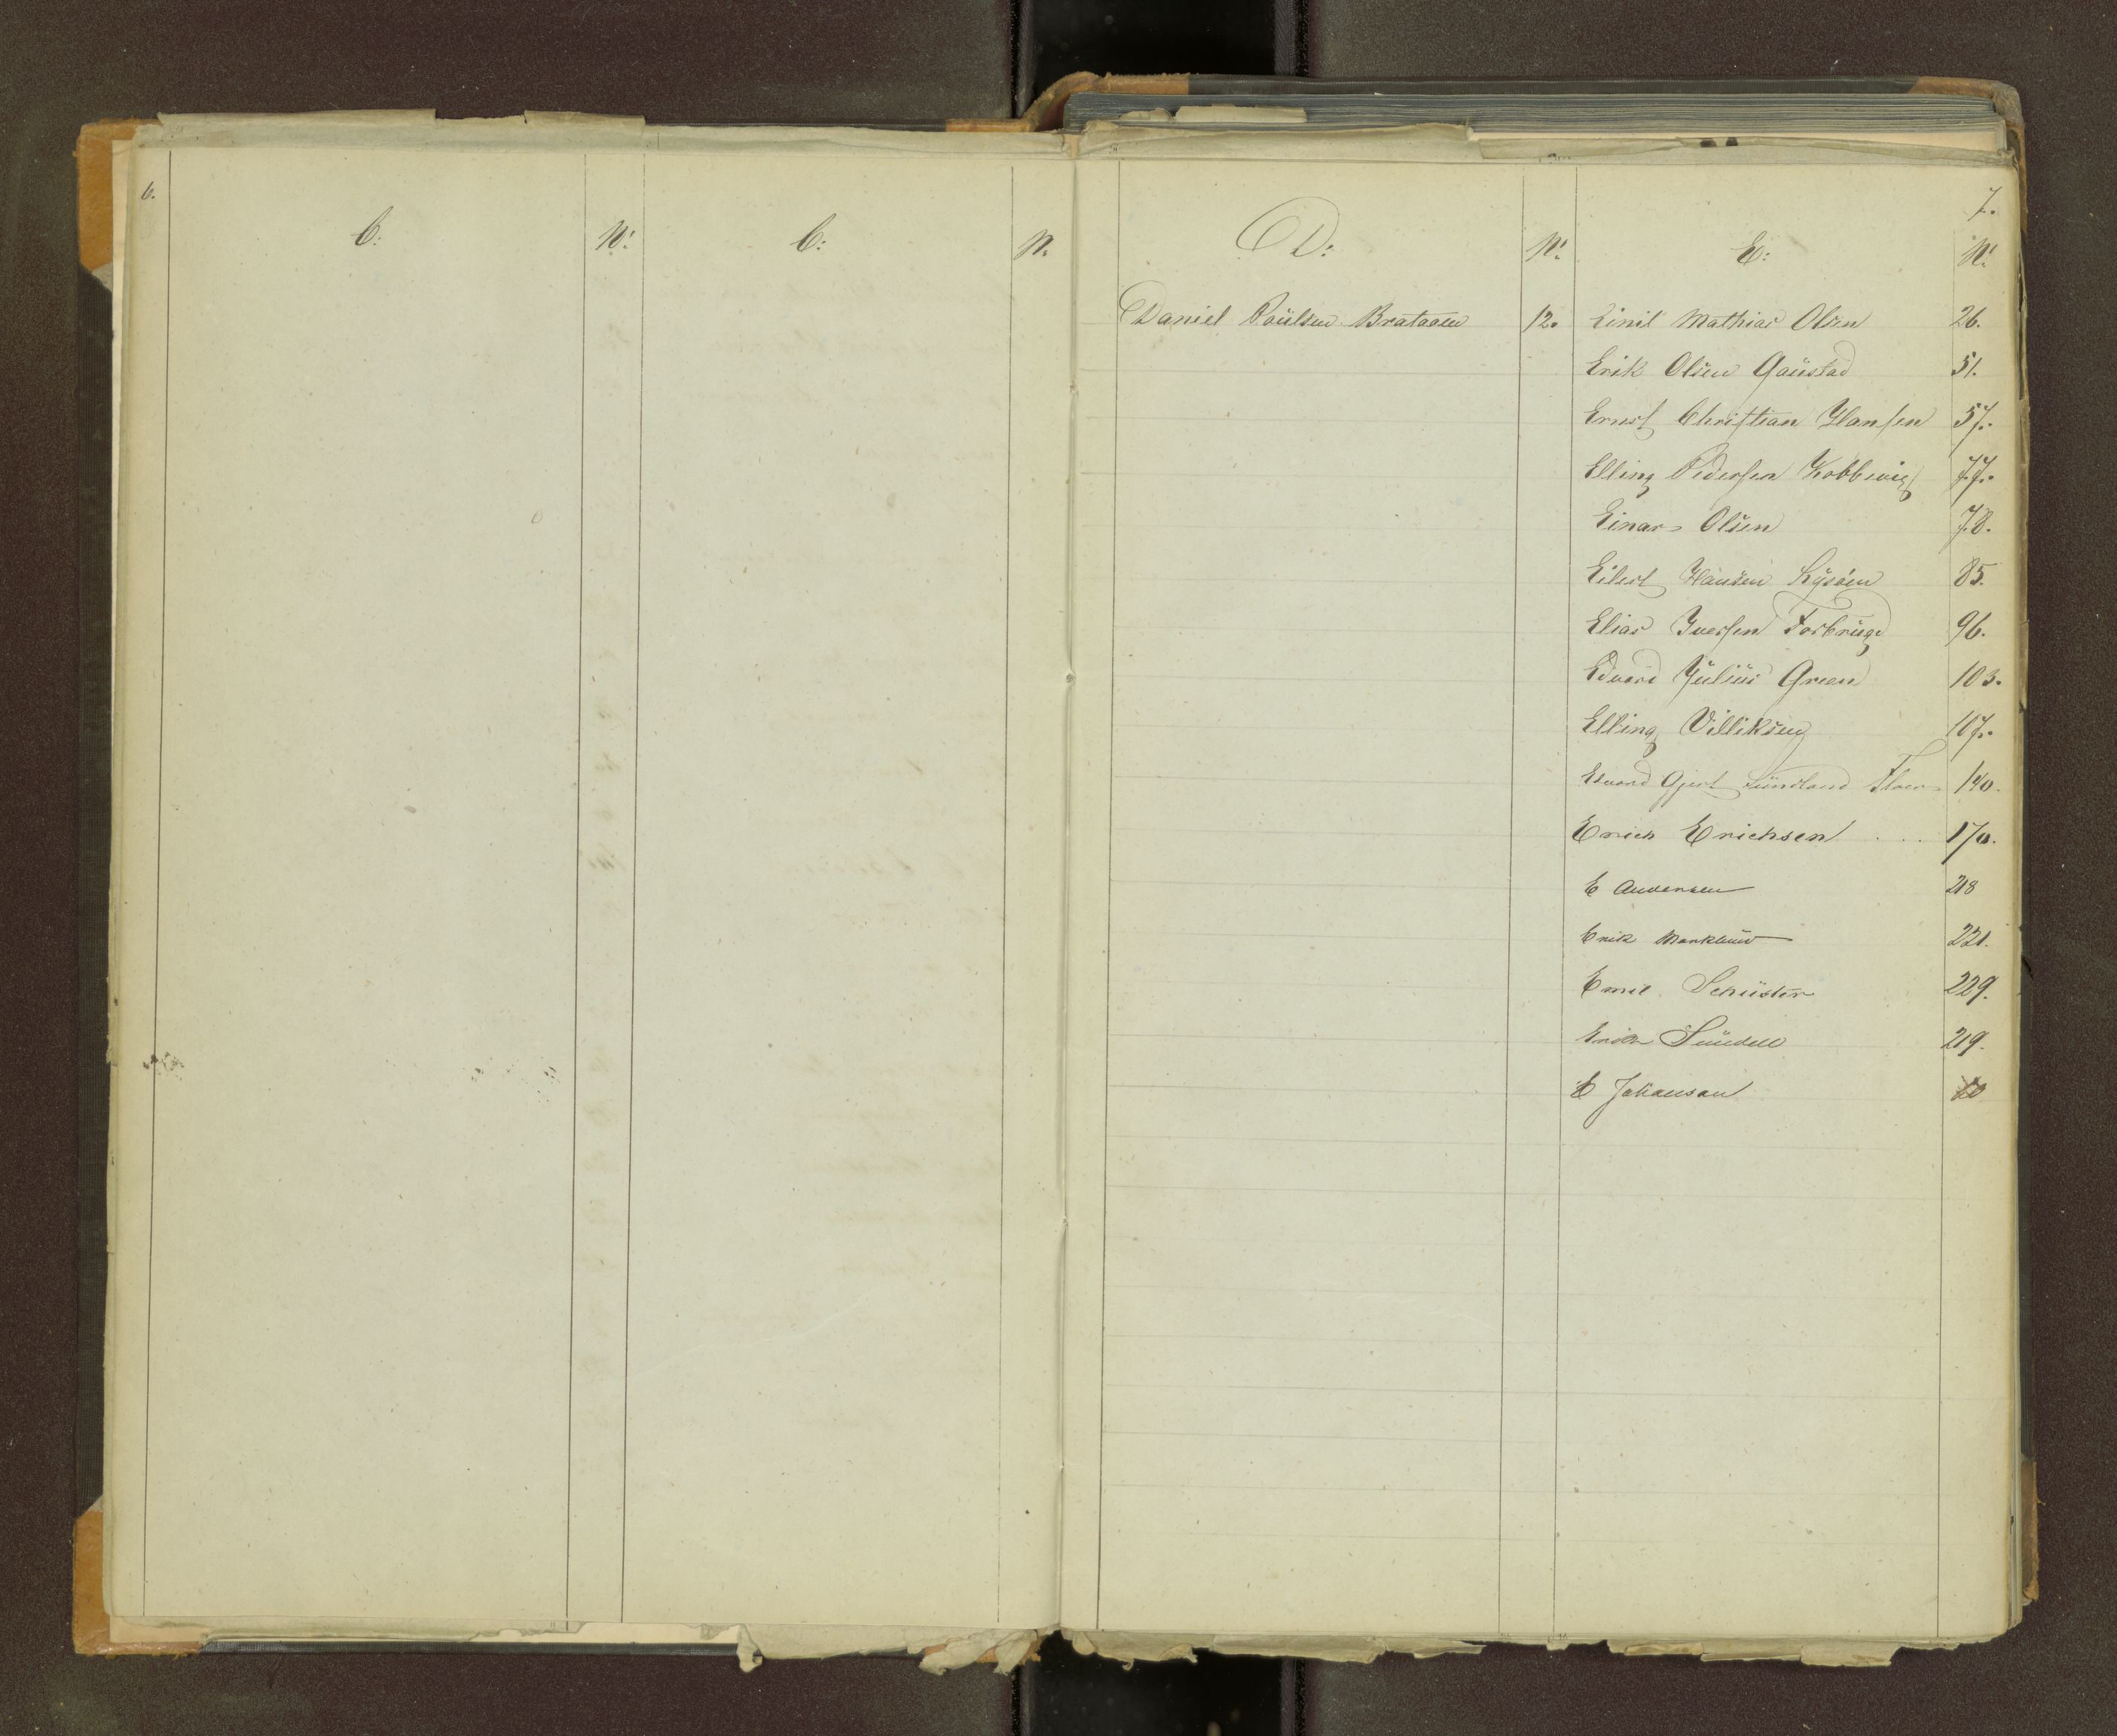 6.
C: N: C: N:
7.
D: N: E: N:
Daniel Paulsen Brataaen 12.
Emil Mathias Olsen 26.
Erik Olsen Gaustad 51.
Ernst Christian Hansen 57.
Elling Pedersen Kobbevig 77.
Einar Olsen 78.
Eilert Hansen Lysøen 85.
Elias Iversen Fosbrug 96.
Edvard Julius Green 103.
Elling Villiksen 107.
Edvard Gjert Sundland 140.
Erich Erichsen 170.
E Andersen 218
Erik Marklund 221.
Emil Schuster 229.
Erik Sundell 219.
E Johanson